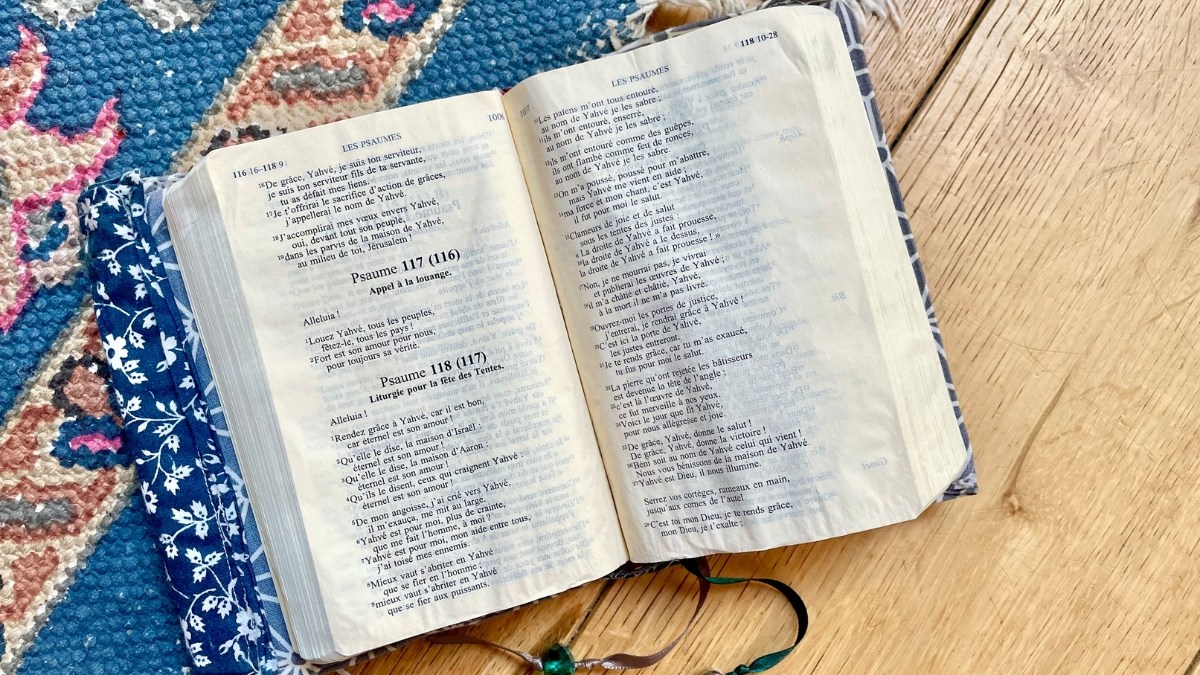 LES PSAUMES
116 16-118 9
¹⁶De grâce, Yahvé, je suis ton serviteur,
je suis ton serviteur fils de ta servante,
tu as défait mes liens.
¹⁷Je t'offrirai le sacrifice d'action de grâces,
j'appellerai le nom de Yahvé.
¹⁸J'accomplirai mes vœux envers Yahvé,
oui, devant tout son peuple,
¹⁹dans les parvis de la maison de Yahvé,
au milieu de toi, Jérusalem !
Psaume 117 (116)
Appel à la louange.
Alleluia !
¹Louez Yahvé, tous les peuples,
fêtez-le, tous les pays !
²Fort est son amour pour nous,
pour toujours sa vérité.
Psaume 118 (117)
Liturgie pour la fête des Tentes.
Alleluia !
¹Rendez grâce à Yahvé, car il est bon,
car éternel est son amour !
²Qu'elle le dise, la maison d'Israël :
éternel est son amour !
³Qu'elle le dise, la maison d'Aaron :
éternel est son amour !
⁴Qu'ils le disent, ceux qui craignent Yahvé :
éternel est son amour !
⁵De mon angoisse, j'ai crié vers Yahvé,
il m'exauça, me mit au large.
⁶Yahvé est pour moi, plus de crainte,
que me fait l'homme, à moi ?
⁷Yahvé est pour moi, mon aide entre tous,
j'ai toisé mes ennemis.
⁸Mieux vaut s'abriter en Yahvé
que se fier en l'homme ;
⁹mieux vaut s'abriter en Yahvé
que se fier aux puissants.
LES PSAUMES
118 10-28
¹⁰Les païens m'ont tous entouré,
au nom de Yahvé je les sabre ;
¹¹ils m'ont entouré, enserré,
au nom de Yahvé je les sabre ;
¹²ils m'ont entouré comme des guêpes,
ils ont flambé comme feu de ronces,
au nom de Yahvé je les sabre.
¹³On m'a poussé, poussé pour m'abattre,
mais Yahvé me vient en aide ;
¹⁴ma force et mon chant, c'est Yahvé,
il fut pour moi le salut.
¹⁵Clameurs de joie et de salut
sous les tentes des justes :
« La droite de Yahvé a fait prouesse,
¹⁶la droite de Yahvé a le dessus,
la droite de Yahvé a fait prouesse ! »
¹⁷Non, je ne mourrai pas, je vivrai
et publierai les œuvres de Yahvé ;
¹⁸il m'a châtié et châtié, Yahvé,
à la mort il ne m'a pas livré.
¹⁹Ouvrez-moi les portes de justice,
j'entrerai, je rendrai grâce à Yahvé !
²⁰C'est ici la porte de Yahvé,
les justes entreront.
²¹Je te rends grâce, car tu m'as exaucé,
tu fus pour moi le salut.
²²La pierre qu'ont rejetée les bâtisseurs
est devenue la tête de l'angle ;
²³c'est là l'œuvre de Yahvé,
ce fut merveille à nos yeux.
²⁴Voici le jour que fit Yahvé,
pour nous allégresse et joie.
²⁵De grâce, Yahvé, donne le salut !
De grâce, Yahvé, donne la victoire !
²⁶Béni soit au nom de Yahvé celui qui vient !
Nous vous bénissons de la maison de Yahvé.
²⁷Yahvé est Dieu, il nous illumine.
Serrez vos cortèges, rameaux en main,
jusqu'aux cornes de l'autel.
²⁸C'est toi mon Dieu, je te rends grâce,
mon Dieu, je t'exalte ;